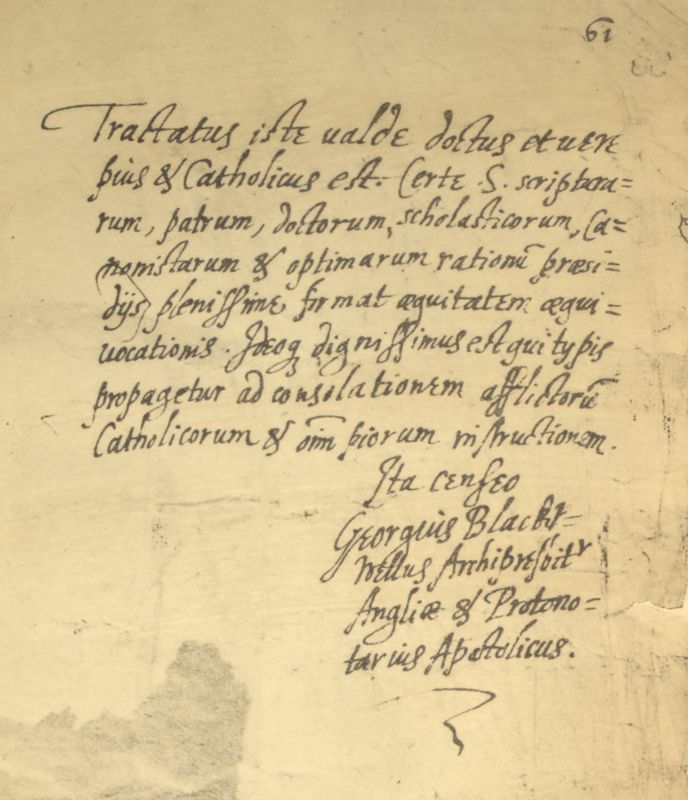 61
Tractatus iste valde doctus et uere
pius & Catholicus est. Certe S. scriptura=
rum, patrum, doctorum, scholasticorum, Ca=
nonistarum & optimarum rationū præsi=
dijs plenissime firmat æquitatem æqui=
uocationis. Ideoq dignissimus est qui typis
propagetur ad consolationem afflictorū
Catholicorum & oīm piorum instructionem.
Ita censeo
Georgius Blackt=
wellus Archipresbitr
Angliæ & Protono=
tarius Apostolicus.